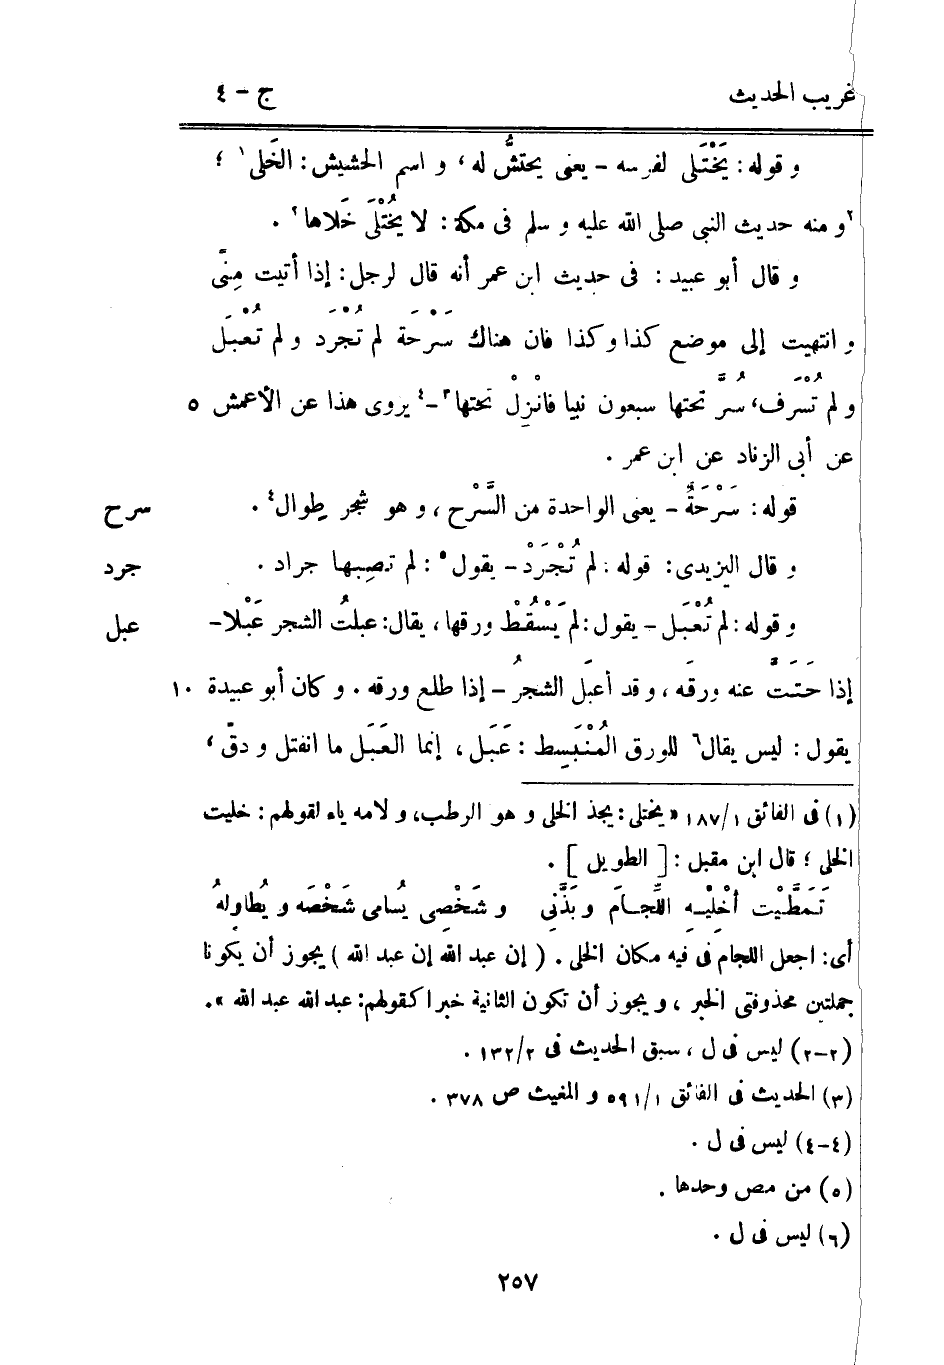 غريب الحديث ج - ٤
و قوله: يَخْتَلى لفرسه – يعنى يحتشُّ له، و اسم الحشيش: الخَلى١ ؛
٢و منه حديث النبى صلى الله عليه و سلم فى مكة: لا يُخْتَلَى خَلاها٢ .
و قال أبو عبيد: فى حديث ابن عمر أنه قال لرجل: إذا أتيت مِنًى
و انتهيت إلى موضع كذا و كذا فان هناك سَرْحَة لم تُجْرَد و لم تُعْبَل
و لم تُسْرَف، سُرَّ تحتها سبعون نبيا فانْزِلْ تحتها٣ –٤ يروى هذا عن الأعمش ٥
عن أبى الزناد عن ابن عمر .
قوله: سَرْحَةٌ – يعنى الواحدة من السَّرْح، و هو شجر طِوال٤ . سرح
و قال اليزيدى: قوله: لم تُجْرَدْ – يقول٥: لم تصِبها جراد . جرد
و قوله: لم تُعْبَل – يقول: لم يَسْقُطْ ورقها، يقال: عبلتُ الشجر عَبْلا – عبل
إذا حَتَتَّ عنه ورقَه، و قد أعبَل الشجرُ – إذا طلع ورقه . و كان أبو عبيدة ١٠
يقول: ليس يقال٦ للورق المُنْبَسِط: عَبَل، إنما العَبَل ما انفتل و دقّ،
(١) فى الفائق ١/١٨٧ « يختلى: يجذ الخلى و هو الرطب، و لامه ياء لقولهم: خليت
الخلى ؛ قال ابن مقبل: [ الطويل ] .
تَمَطَّيْت أخْلِيْهِ اللِّجامَ و بَذَّنى و شَخْصِى يُسامى شَخْصَه و يُطاولهُ
أى: اجعل اللجام فى فيه مكان الخلى . ( إن عبد الله إن عبد الله ) يجوز أن يكونا
جملتين محذوفتى الخبر، و يجوز أن تكون الثانية خبرا كقولهم: عبد الله عبد الله ».
(٢-٢) ليس فى ل، سبق الحديث فى ٢/١٣٢ .
(٣) الحديث فى الفائق ١/٥٩١ و المغيث ص ٣٧٨ .
(٤-٤) ليس فى ل .
(٥) من مص وحدها .
(٦) ليس فى ل .
٢٥٧